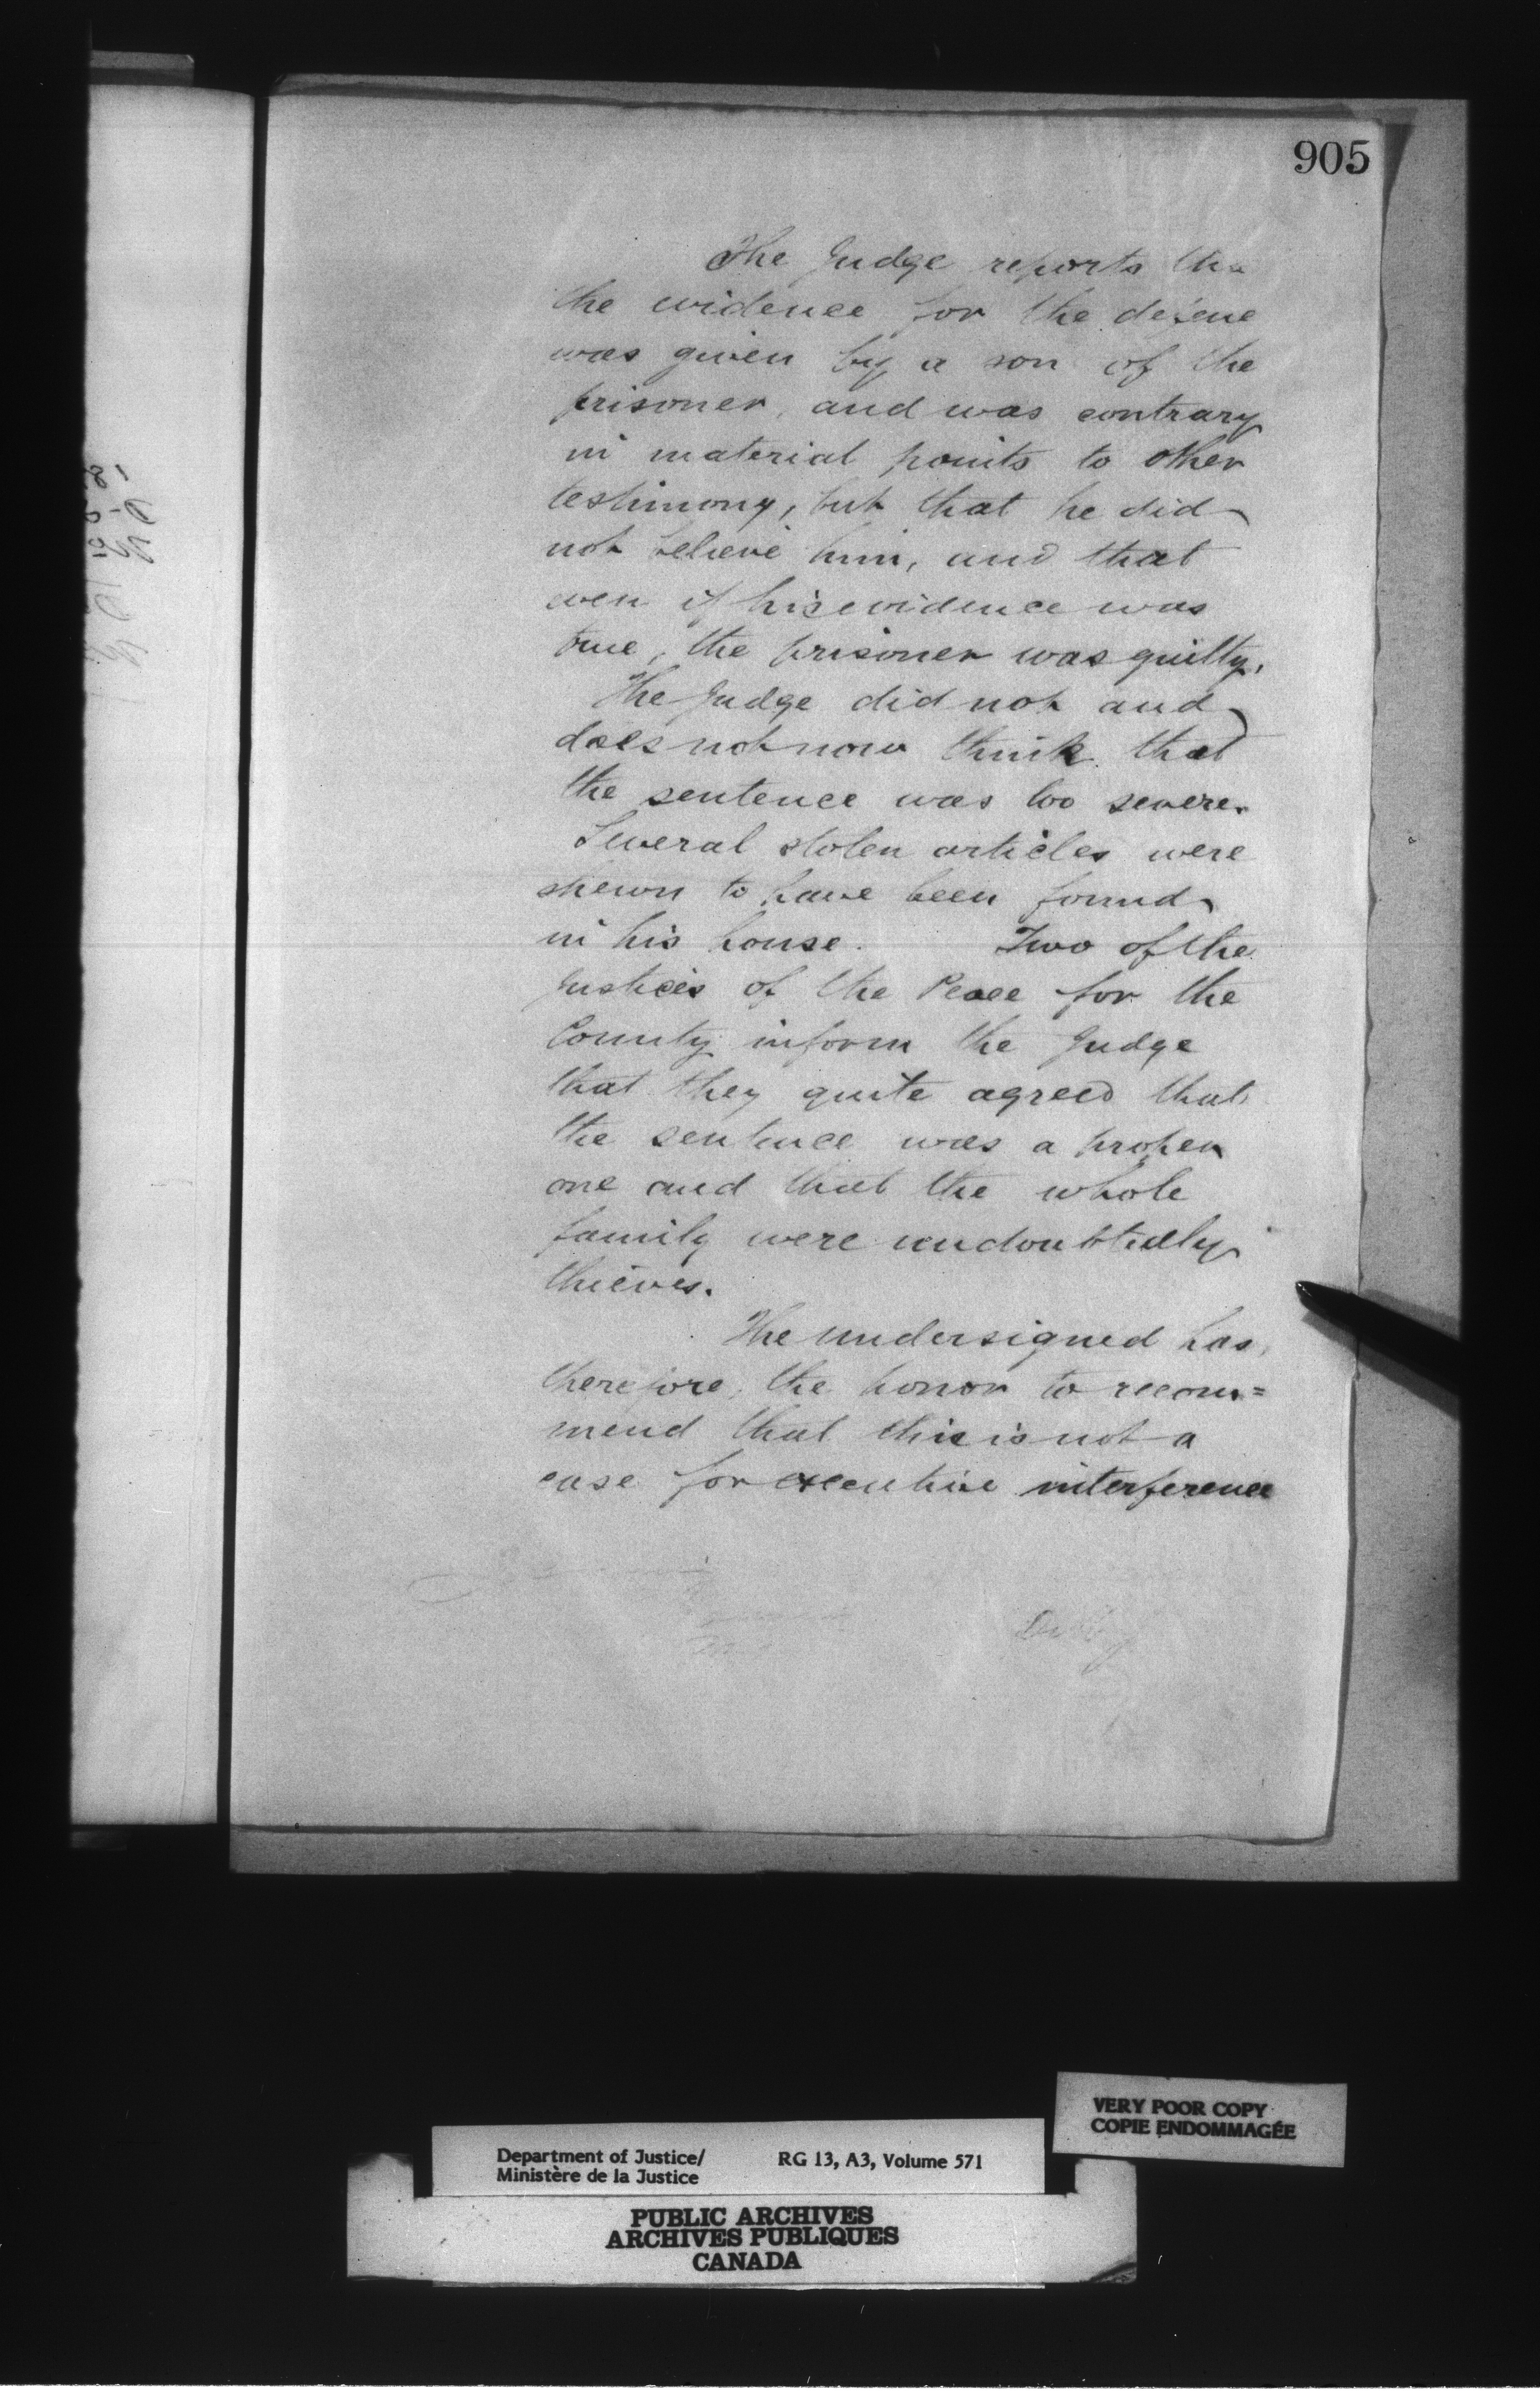 905
The Judge reports tha
the evidence for the defene
was given by a son of the
prisoner, and was contrary
in material points to other
testimony, but that he did
not believe him, and that
even if his evidence was
true, the prisoner was guilty.
The Judge did not and
does not now think that
the sentence was too severe.
Several stolen articles were
shewn to have been found
in his house. Two of the
Justices of the Peace for the
County inform the Judge
that they quite agreed that
the sentence was a proper
one and that the whole
family were undoubtedly
thieves.
The undersigned has,
therefore, the honor to recom=
mend that this is not a
case for executive interference
VERY POOR COPY
COPIE ENDOMMAGÉE
Department of Justice/ RG 13, A3, Volume 571
Ministère de la Justice
PUBLIC ARCHIVES
ARCHIVES PUBLIQUES
CANADA